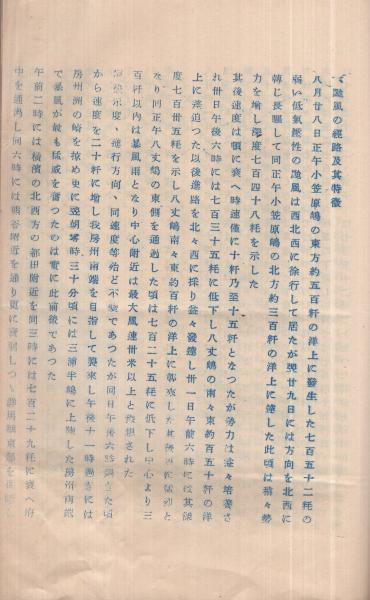 颱風の經路及其特徵
八月廿八日正午小笠原島の東方約五百粁の洋上に發生した七百五十二粍の
弱い低氣壓性の颱風は西北西に徐行して居たが翌廿九日には方向を北西に
轉じ長驅して同正午小笠原島の北方約三百粁の洋上に達した此頃は稍々勢
力を増し深度七百四十八粍を示した
其後速度は頓に衰へ時速僅に十粁乃至十五粁となつたが勢力は益々培養さ
れ卅日午後六時には七百三十五粍に低下し八丈島の南々東約百五十粁の洋
上に迫つた以後進路を北々西に採り益々發達し卅一日午前六時には其深
度七百卅五粍を示し八丈島南々東約百粁の洋上に襲來した其後
なり同正午八丈島の東側を通過した頃は七百二十五粍に低下し中心より三
百粁以内は暴風雨となり中心附近は最大風速卅米以上と推想された
示度、進行方向、同速度等殆ど不變であつたが同日午後六時頃
から速度を二十粁に増し我房州南端を目指して襲來し午後十一時には
房州洲の崎を掠め更に翌朝零時三十分頃には三浦半島に上陸した房州南端
で暴風が最も猛威を奮つたのは實に此前後であつた
午前二時には横濱の北西方の都田附近を同三時には七百二十九粍に衰へ府
中を通過し同六時には熊谷附近を通り更に衰弱しつゝ群馬縣東部を